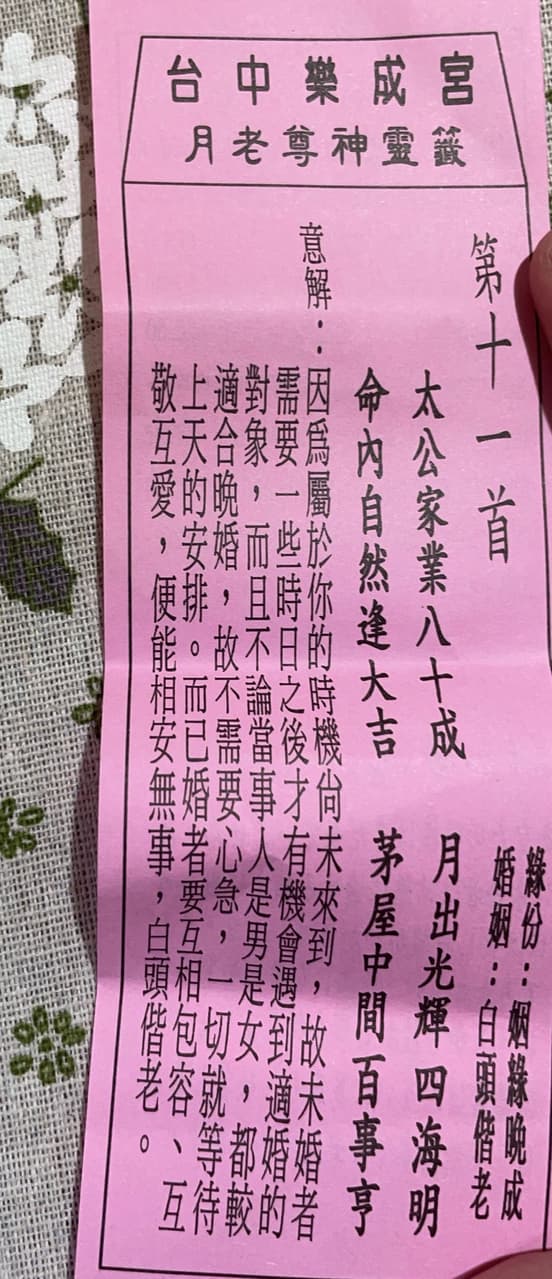 台中樂成宮
月老尊神靈籤
第十一首
緣份：姻緣晚成
婚姻：白頭偕老
太公家業八十成　月出光輝四海明
命內自然逢大吉　茅屋中間百事亨
意解：因為屬於你的時機尚未來到，故未婚者
需要一些時日之後才有機會遇到適婚的
對象，而且不論當事人是男是女，都較
適合晚婚，故不需要心急，一切就等待
上天的安排。而已婚者要互相包容、互
敬互愛，便能相安無事，白頭偕老。